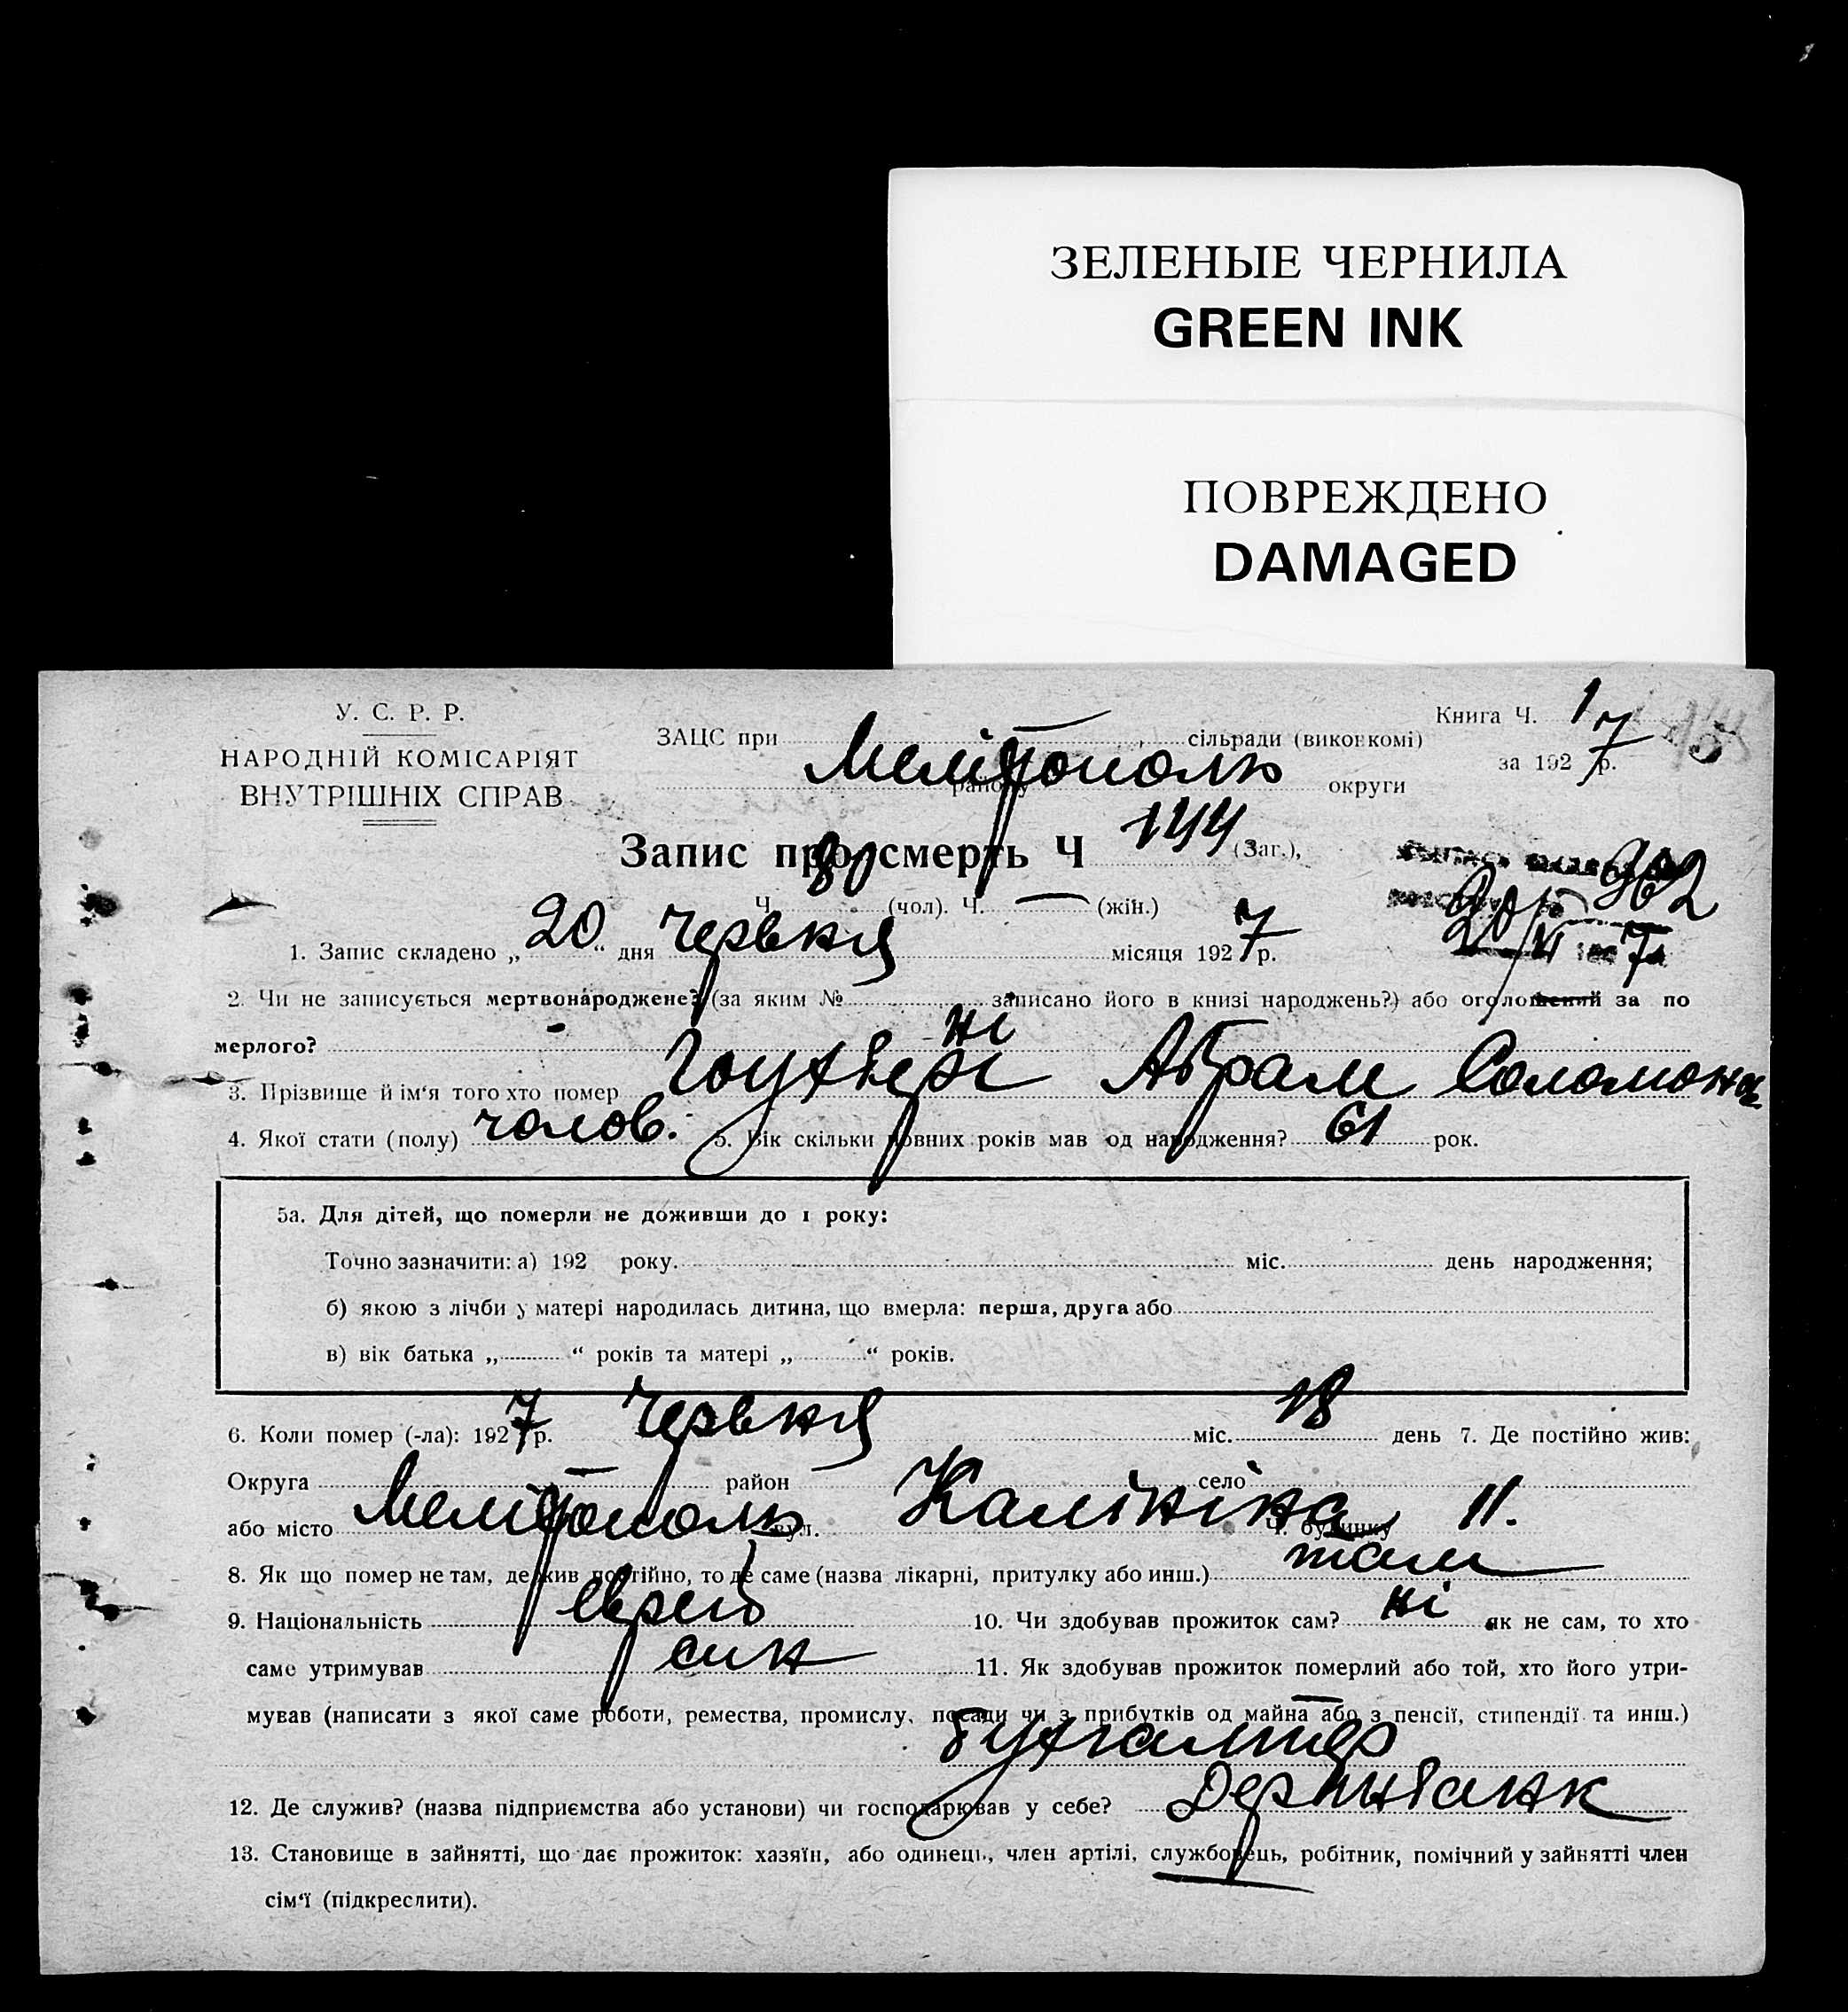 ЗЕЛЕНЫЕ ЧЕРНИЛА
GREEN INK
ПОВРЕЖДЕНО
DAMAGED
У. С. Р. Р.
НАРОДНІЙ КОМІСАРІЯТ
ВНУТРІШНІХ СПРАВ
Книга Ч. 1
за 1927 р.
ЗАЦС при сільради (виконкомі)
Мелітополь
району округи
Запис про смерть Ч 144 (Заг.),
Ч. 80 (чол). Ч. — (жін.)
962
20/VI 7
1. Запис складено „20“ дня Червня місяця 1927 р.
2. Чи не записується мертвонароджене? (за яким № записано його в книзі народжень?) або оголошений за по
мерлого? ні
3. Прізвище й ім‘я того хто помер Абрам Соломон
4. Якої стати (полу) чолов. 5. Вік скільки повних років мав од народження? 61 рок.
5а. Для дітей, що померли не доживши до 1 року:
Точно зазначити: а) 192 року. міс. день народження;
б) якою з лічби у матері народилась дитина, що вмерла: перша, друга або
в) вік батька „ “ років та матері „ “ років.
6. Коли помер (-ла): 1927 р. Червня міс. 18 день 7. Де постійно жив:
Округа район село
або місто Мелітополь вул. Калініна Ч. будинку 11.
8. Як що помер не там, де жив постійно, то де саме (назва лікарні, притулку або инш.) там
9. Національність еврей 10. Чи здобував прожиток сам? ні як не сам, то хто
саме утримував син 11. Як здобував прожиток померлий або той, хто його утри-
мував (написати з якої саме роботи, ремества, промислу, посади чи з прибутків од майна або з пенсії, стипендії та инш.)
бухгалтер
12. Де служив? (назва підприємства або установи) чи господарював у себе? Держбанк
13. Становище в зайнятті, що дає прожиток: хазяїн, або одинець, член артілі, службовець, робітник, помічний у зайнятті член
сім‘ї (підкреслити).